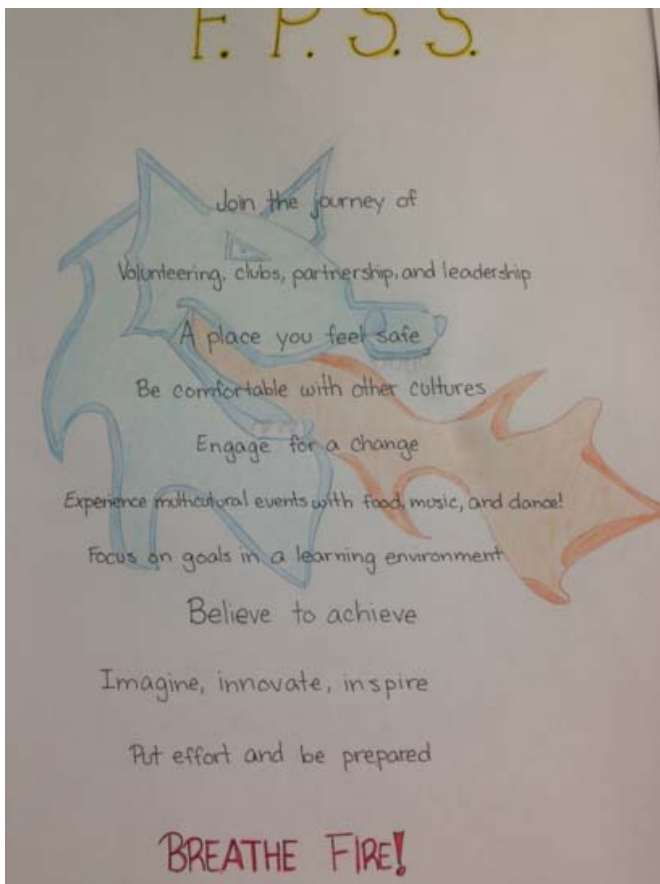 F. P. S. S.
Join the journey of
Volunteering, clubs, partnership, and leadership
A place you feel safe
Be comfortable with other cultures
Engage for a change
Experience multicutural events with food, music, and dance!
Focus on goals in a learning environment
Believe to achieve
Imagine, innovate, inspire
Put effort and be prepared
BREATHE FIRE!